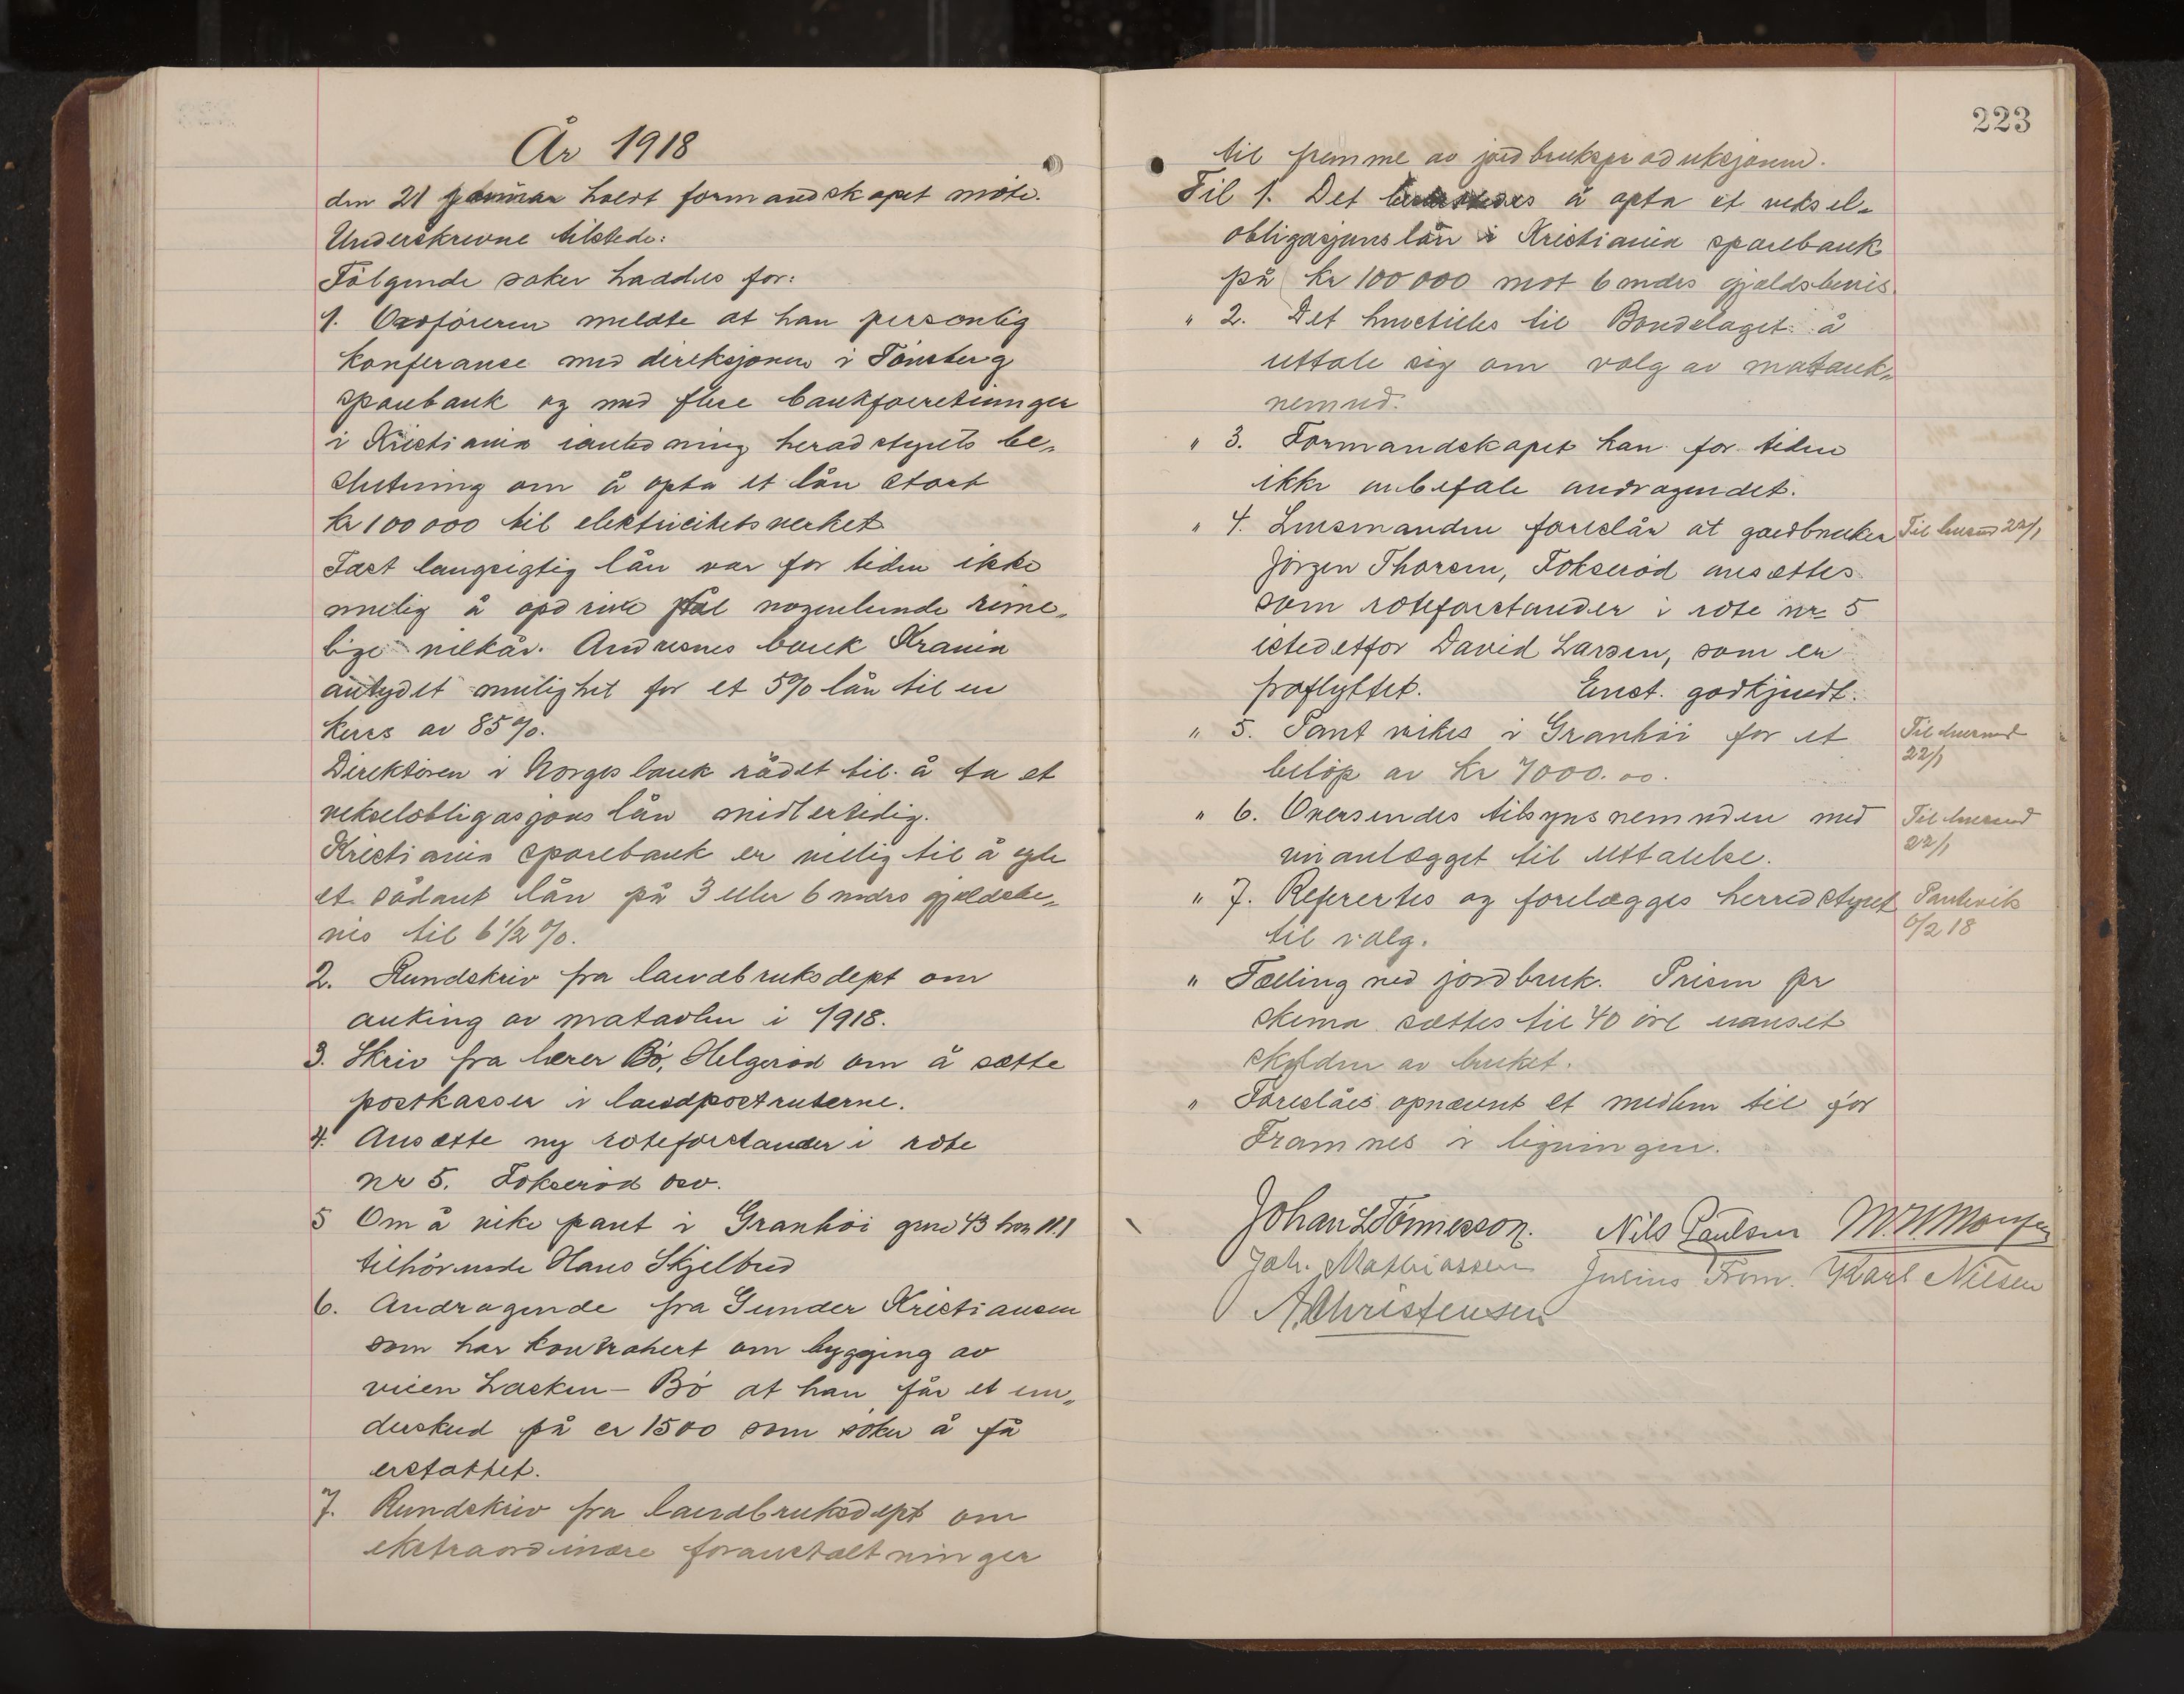 År 1918
den 21 januar holdt formandskapet møte.
Underskrevne tilstede:
Følgende saker haddes for:
1. Ordføreren meldte at han personlig
konferanse med direksjonen i Tønsberg
sparebank og med flere bankforretninger
i Kristiania heradstyrets be-
slutning om å opta et lån stort
kr 100000 til elektricitetsverket
Fast langsigtig lån var for tiden ikke
mulig å opdrive på nogenlunde rime-
lige vilkår. Andresens bank Krania
antydet mulighet for et 5% lån til en
kurs av 85%.
Direktøren i Norges bank rådet til å ta et
vekselobligasjons lån midlertidig.
Kristiania sparebank er villig til å yde
et sådant lån på 3 eller 6 mdrs gjældsbe-
vis til 6 1/2 %.
2. Rundskriv fra landbruksdept om
auking av matavlen i 1918.
3. Skriv fra lærer Bö, Helgerød om å sætte
postkasser i landpostruterne.
4. Ansætte ny roteforstander i rote
nr 5. Fokserød osv.
5 Om å vike pant i Granhöi gno 43 bno 11.1
tilhörende Hans Skjelbred
6. Andragende fra Gunder Kristiansen
som har kontrahert om bygging av
veien Lasken - Bö at han får et un-
derskud på cr 1500 som søker å få
erstattet.
7. Rundskriv fra landbruksdept om
ekstraordinære foranstaltninger
223
til fremme av jordbruksproduksjonen.
Til 1. Det å opta et veksel-
obligasjonslån i Kristiania sparebank
på kr 100000 mot 6 mdrs gjældsbevis.
" 2. Det henstilles til Bondelaget å
uttale sig om valg av matauk-
nemnd.
" 3. Formandskapet kan for tiden
ikke anbefale andragendet.
" 4. Lensmanden foreslår at gardbruker
Til 22/1
Jørgen Thorsen, Fokserød ansættes
som roteforstander i rote nr 5
istedetfor David Larsen, som er
fraflyttet. Enst. godkjendt.
" 5. Pant vikes i Granhöi for et
Til
22/1
beløp av Kr 7000.00.
" 6. Oversendes tilsynsnemnden med
Til
22/1
veianlægget til uttalelse.
" 7. Refertes og forelægges herredstyret
Pantevik
6/2 18
til valg.
" Tælling ved jordbruk. Prisen pr
skema sættes til 40 øre uanset
skylden av bruket.
" Foreslåes opnævnt et medlem til for
Framnes i ligningen.
Johan L Tönnesson. Nils Paulsen M. W. Monsen
Joh. Mathiassen Julius From. Karl Nilsen
A. Christensen